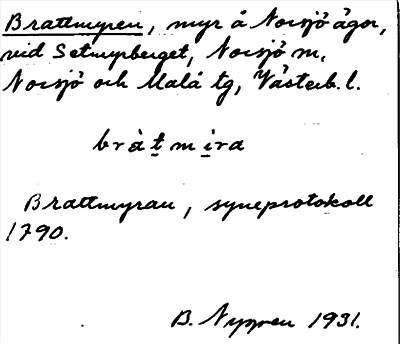 Brattmyren, myr å Norsjö ägor,
vid Setmyrberget, Norsjö sn,
Norsjö och Malå tg, Västerb. l.
bràt̲mi̲ra
Brattmyran, syneprotokoll
1790.
B. Nygren 1931.